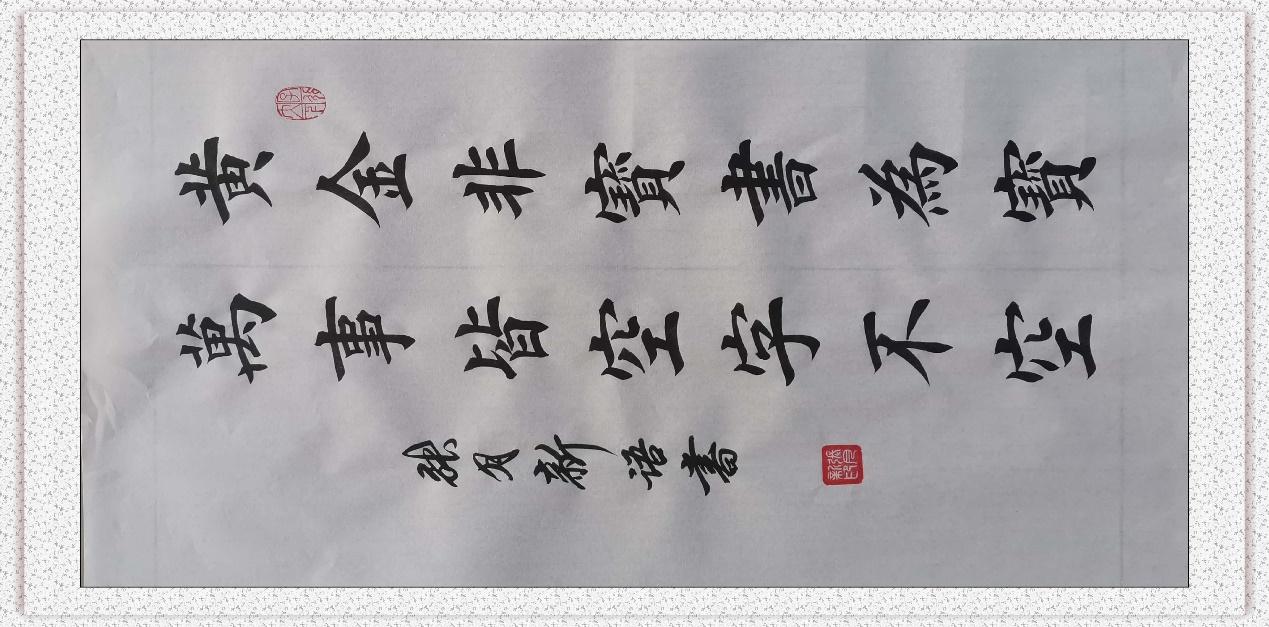 黄金非寶書為寶
萬事皆空字不空
張月新書